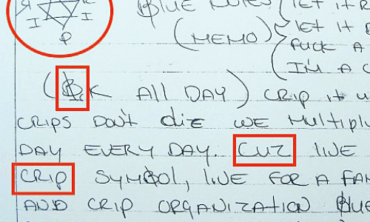 R I
I I
P
BLUE NOTES
(MEMO)
LET IT R
LET IT B
FUCK A
I'M A C
(BK ALL DAY) CRIP IT U
CRIPS DON'T DIE WE MULTIPL
DAY EVERY DAY. CUZ LIVE
CRIP SYMBOL, LIVE FOR A FAM
AND CRIP ORGANIZATION BLUE